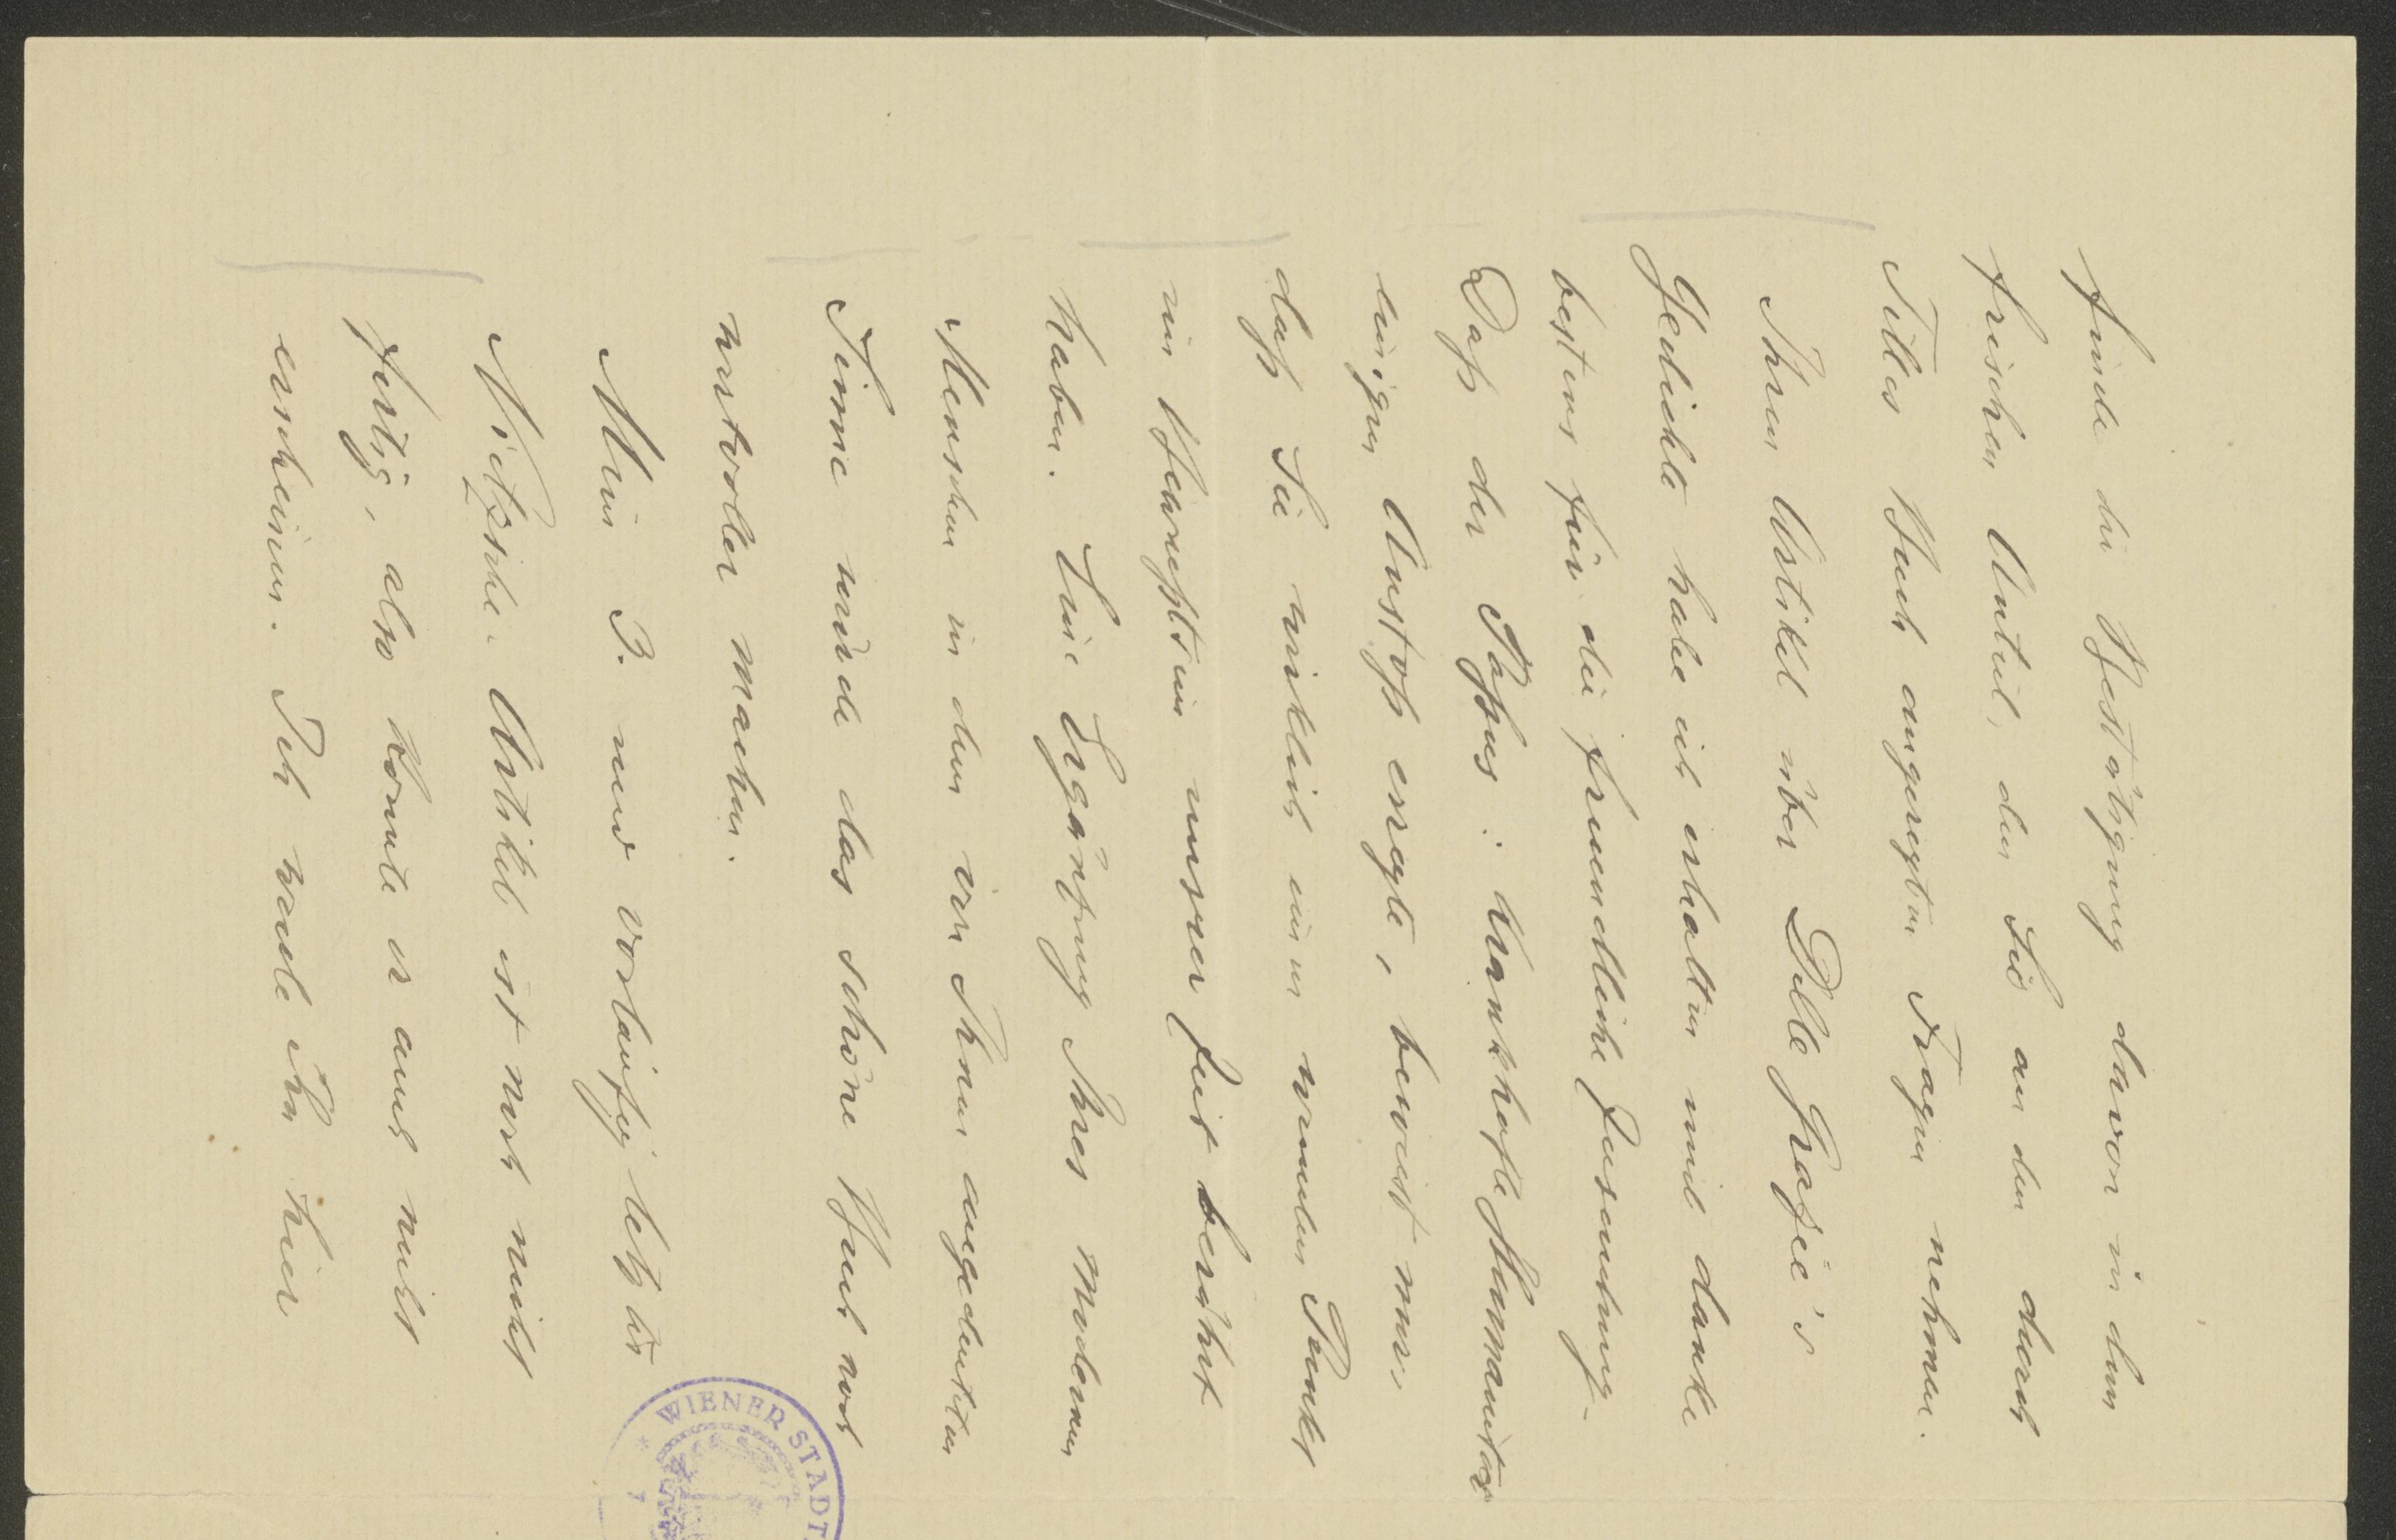 finde die Bestätigung davon in dem
frischen Anteil, den Sie an den durch
Tilles Buch angeregten Fragen nehmen.
Ihren Artikel über Delle Grazie's
Gedichte habe ich erhalten und danke
bestens für die freundliche Zusendung.
Daß der Passus: krankhafte
einigen Anstoß erregte, beweist nur,
daß Sie wirklich einen wunden Punkt
im Bewußtsein unsrer Zeit berührt
haben. Eine Ergänzung Ihres modernen
Menschen in dem von Ihnen angedeuteten
Sinne würde das schöne Buch noch
wertvoller machen.
Mein 3. und vorläufig letzter
Nietzsche-Artikel ist noch nicht
fertig, also konnte er auch nicht
erscheinen. Ich werde ihn hier
WIENER STADT